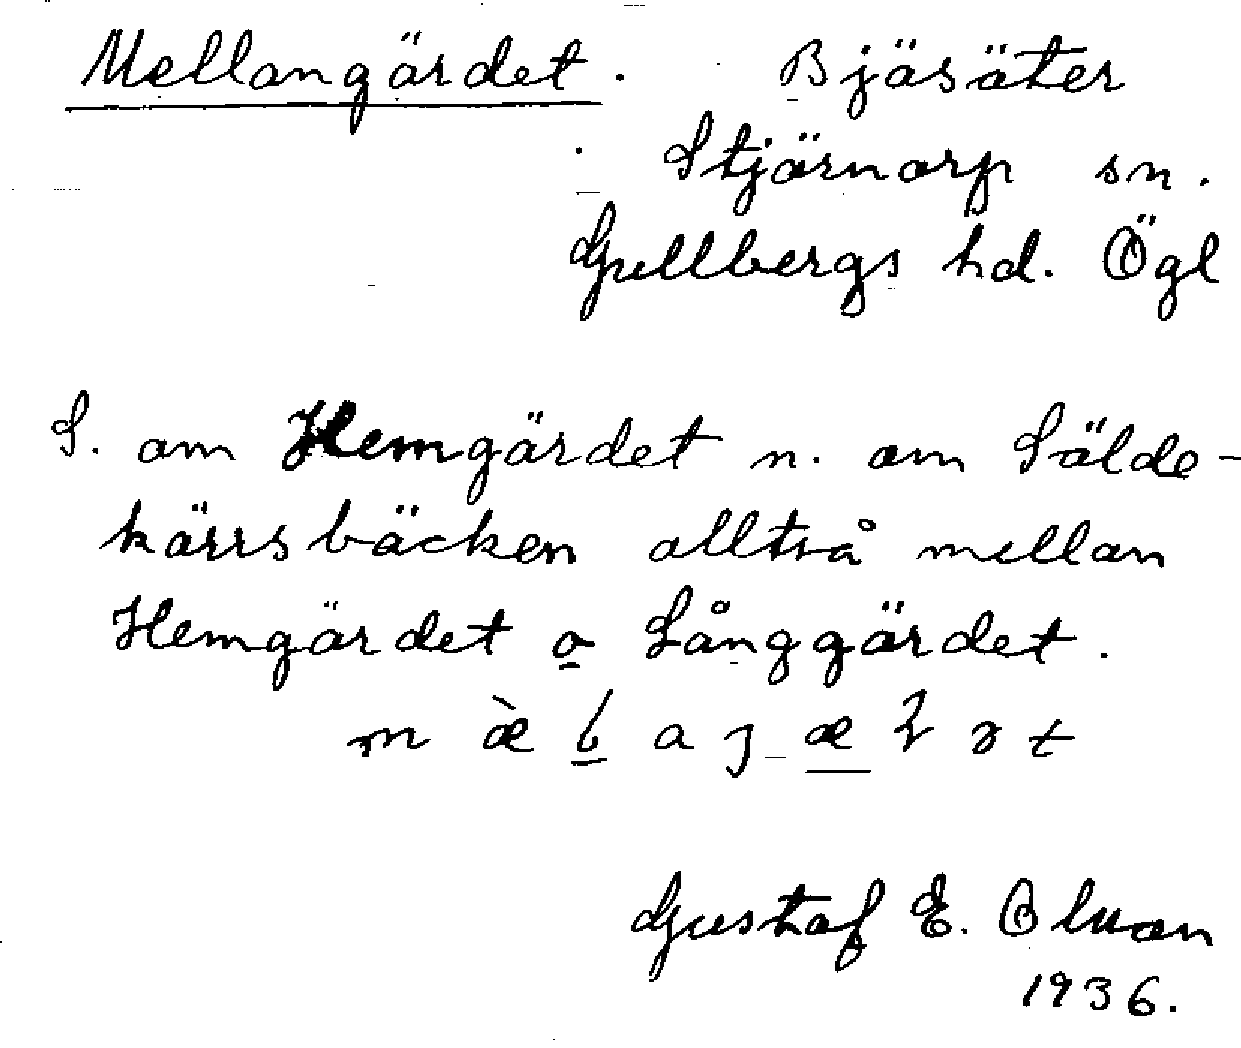 Mellangärdet. Bjäsäter
Stjärnorp sn.
Gullbergs hd. Ögl
S. om Hemgärdet n. om Sälde-
kärrsbäcken alltså mellan
Hemgärdet o Långgärdet.
Gustaf E.
1936.